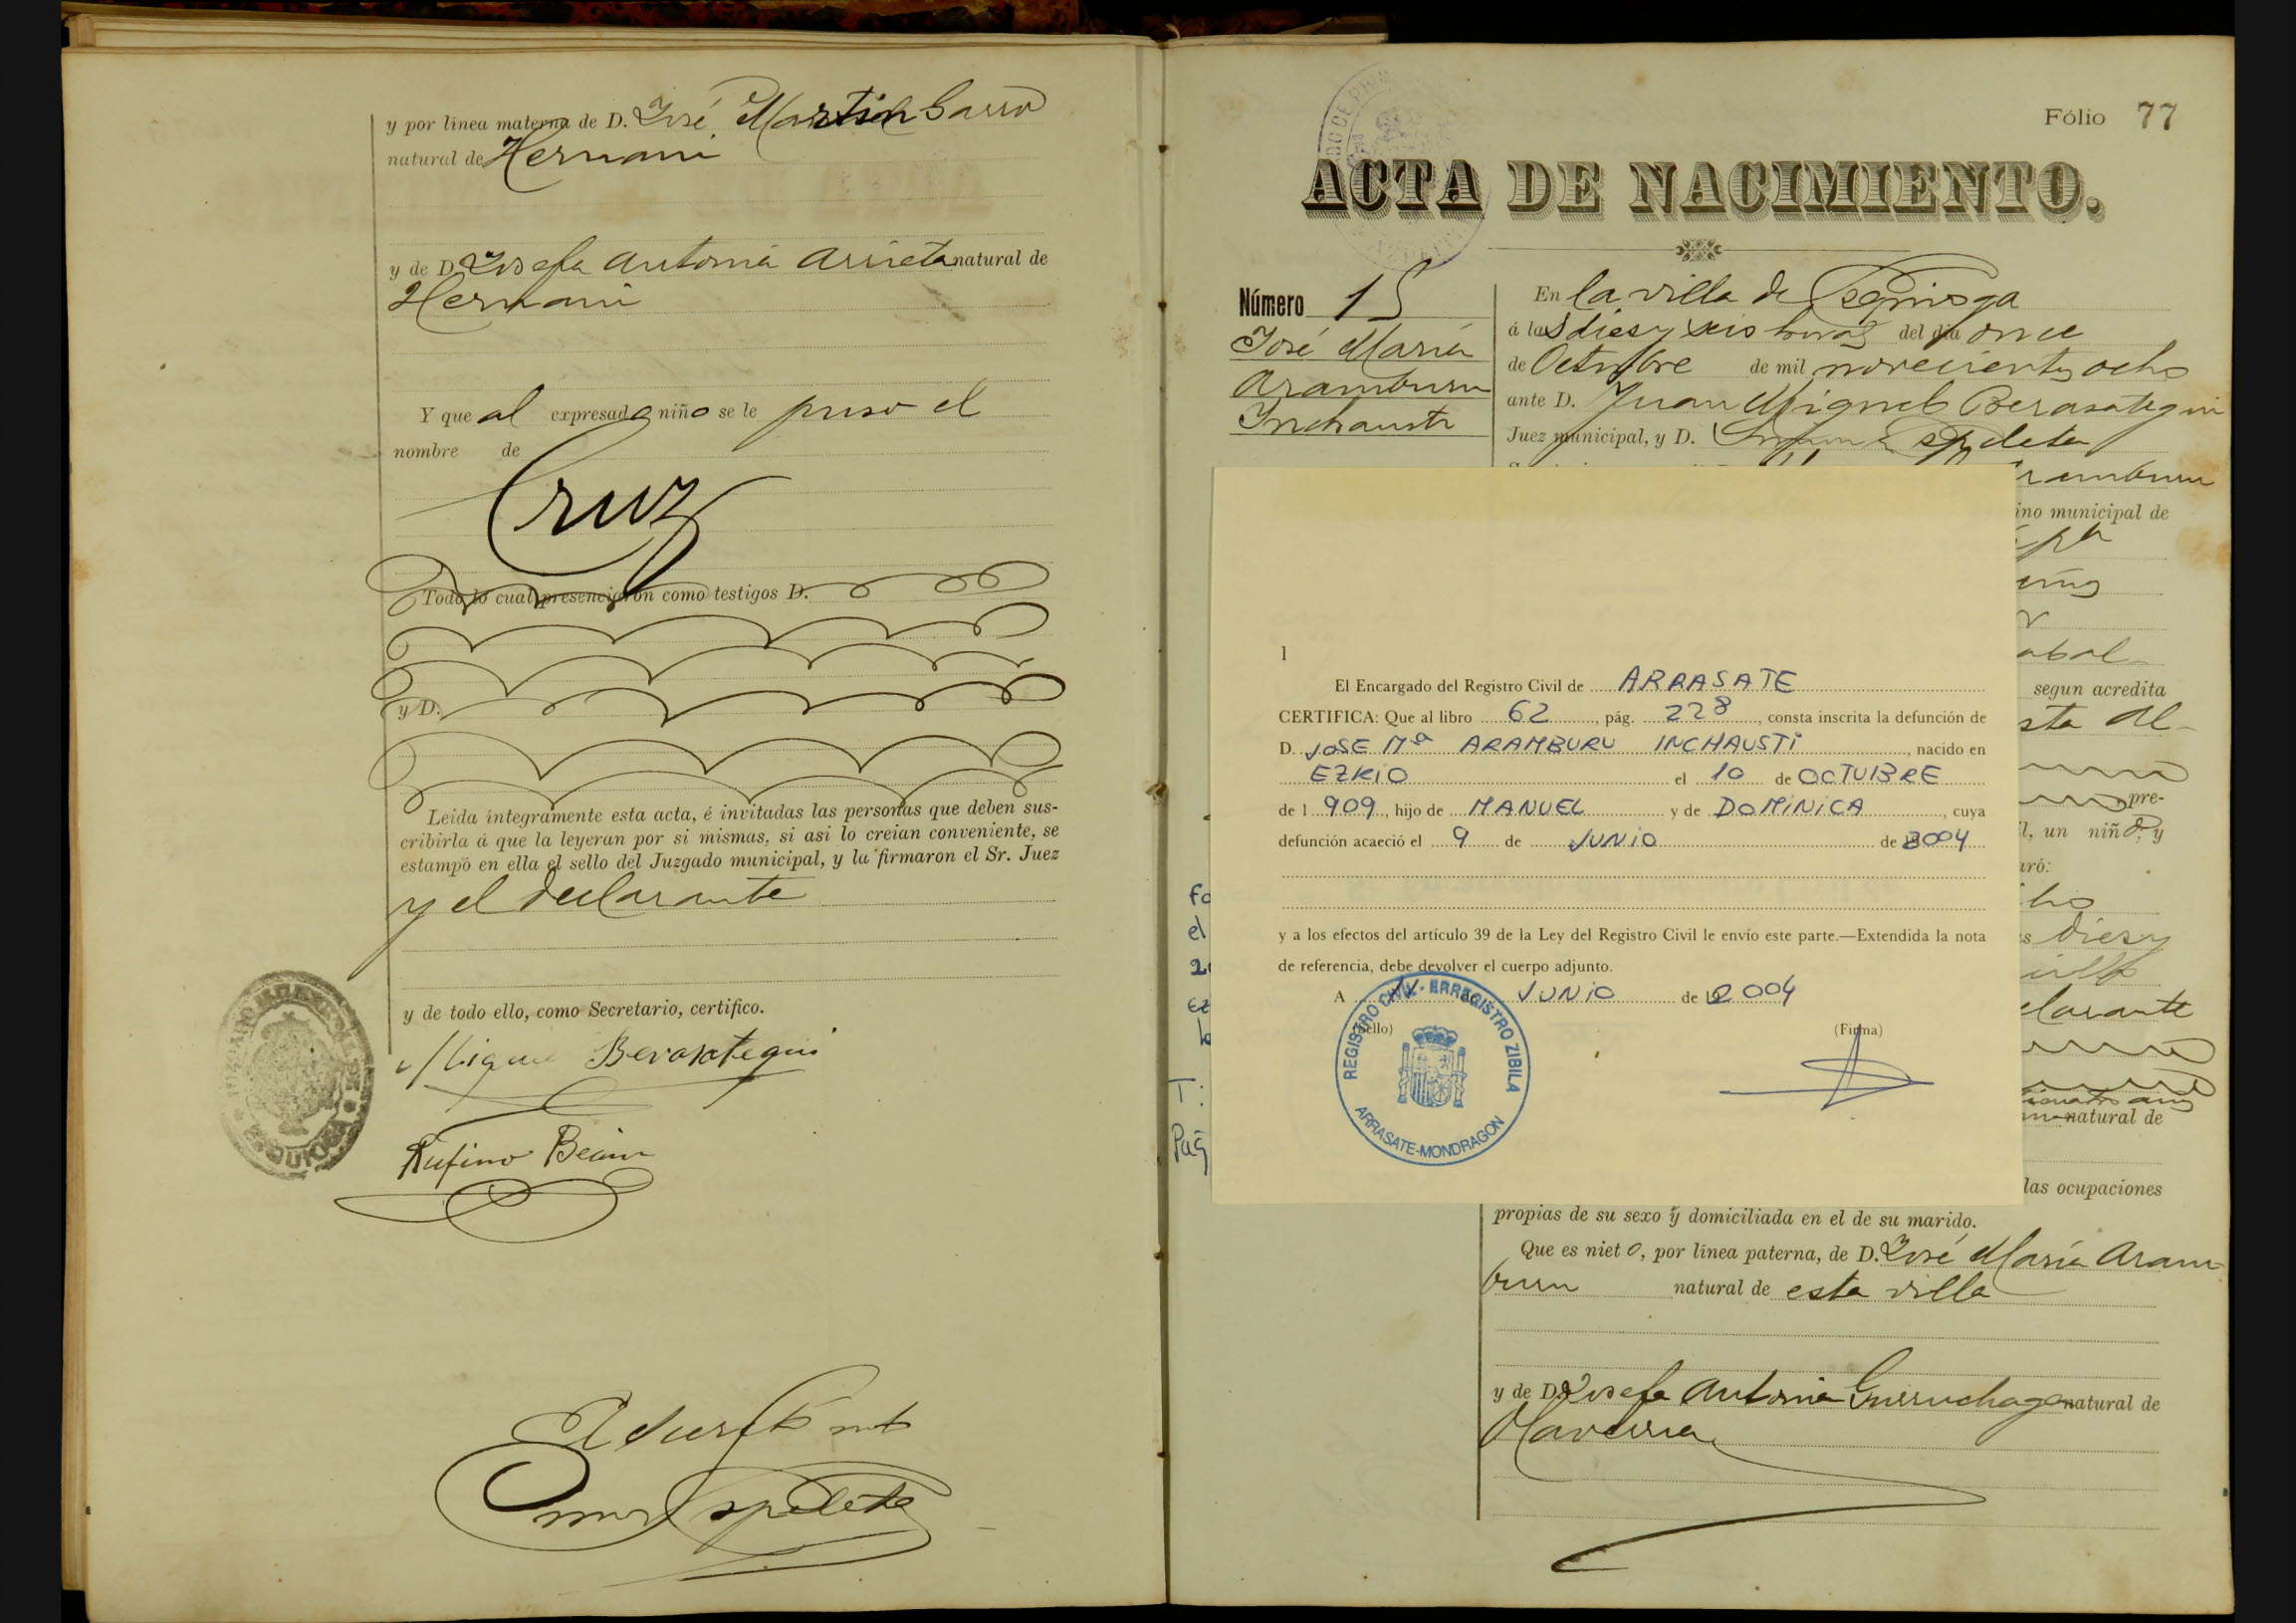 y por línea materna de D. José Martin Garro
natural de Hernani
y de D. Josefa Antonia Arrieta natural de
Hernani
Y que al expresado niño se le puso el
nombre de
Cruz
Todo lo cual presenciaron como testigos D.
y D.
Leida íntegramente esta acta, é invitadas las personas que deben sus-
cribirla á que la leyeran por si mismas, si asi lo creian conveniente, se
estampó en ella el sello del Juzgado municipal, y la firmaron el Sr. Juez
y el declarante
y de todo ello, como Secretario, certifico.
Miguel Berasategui
Rufino Beain
Ezpeleta
Fólio 77
ACTA DE NACIMIENTO.
Número 15
José María
Aramburu
Inchausti
En la villa de Ezquioga
á las diez y seis horas del dia once
de Octubre de mil novecientos ocho
ante D. Juan Miguel Berasategui
Juez municipal, y D. Ezpeleta
Aramburu
ino municipal de
abal
segun acredita
sta Al-
pre-
l, un niño, y
aró:
s diez y
villa
clarante
natural de
las ocupaciones
propias de su sexo y domiciliada en el de su marido.
Que es nieto, por línea paterna, de D. José María Aram-
buru natural de esta villa
y de D. Josefa Antonia Gurruchaga natural de
Navarra
1
El Encargado del Registro Civil de ARRASATE
CERTIFICA: Que al libro 62, pág. 228, consta inscrita la defunción de
D. JOSE Mª ARAMBURU INCHAUSTI, nacido en
EZKIO el 10 de OCTUBRE
de 1 909, hijo de MANUEL y de DOMINICA, cuya
defunción acaeció el 9 de JUNIO de 2004
y a los efectos del artículo 39 de la Ley del Registro Civil le envío este parte.—Extendida la nota
de referencia, debe devolver el cuerpo adjunto.
A 11 de JUNIO de 2004
(Sello) (Firma)
REGISTRO CIVIL - ERREGISTRO ZIBILA
ARRASATE-MONDRAGON
Fo
el
T:
Pág